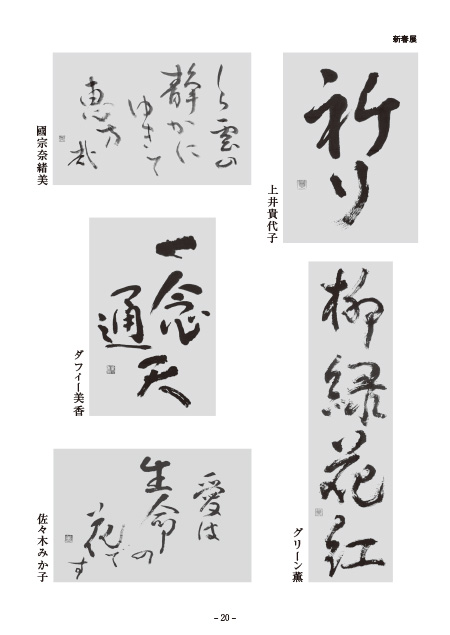 新春展
祈り
上井貴代子
しら雲の
静かに
ゆきて
恵方
哉
國宗奈緒美
一念
通天
ダフィー美香
柳緑花紅
グリーン薫
愛は
生命の
花で
す
佐々木みか子
- 20 -